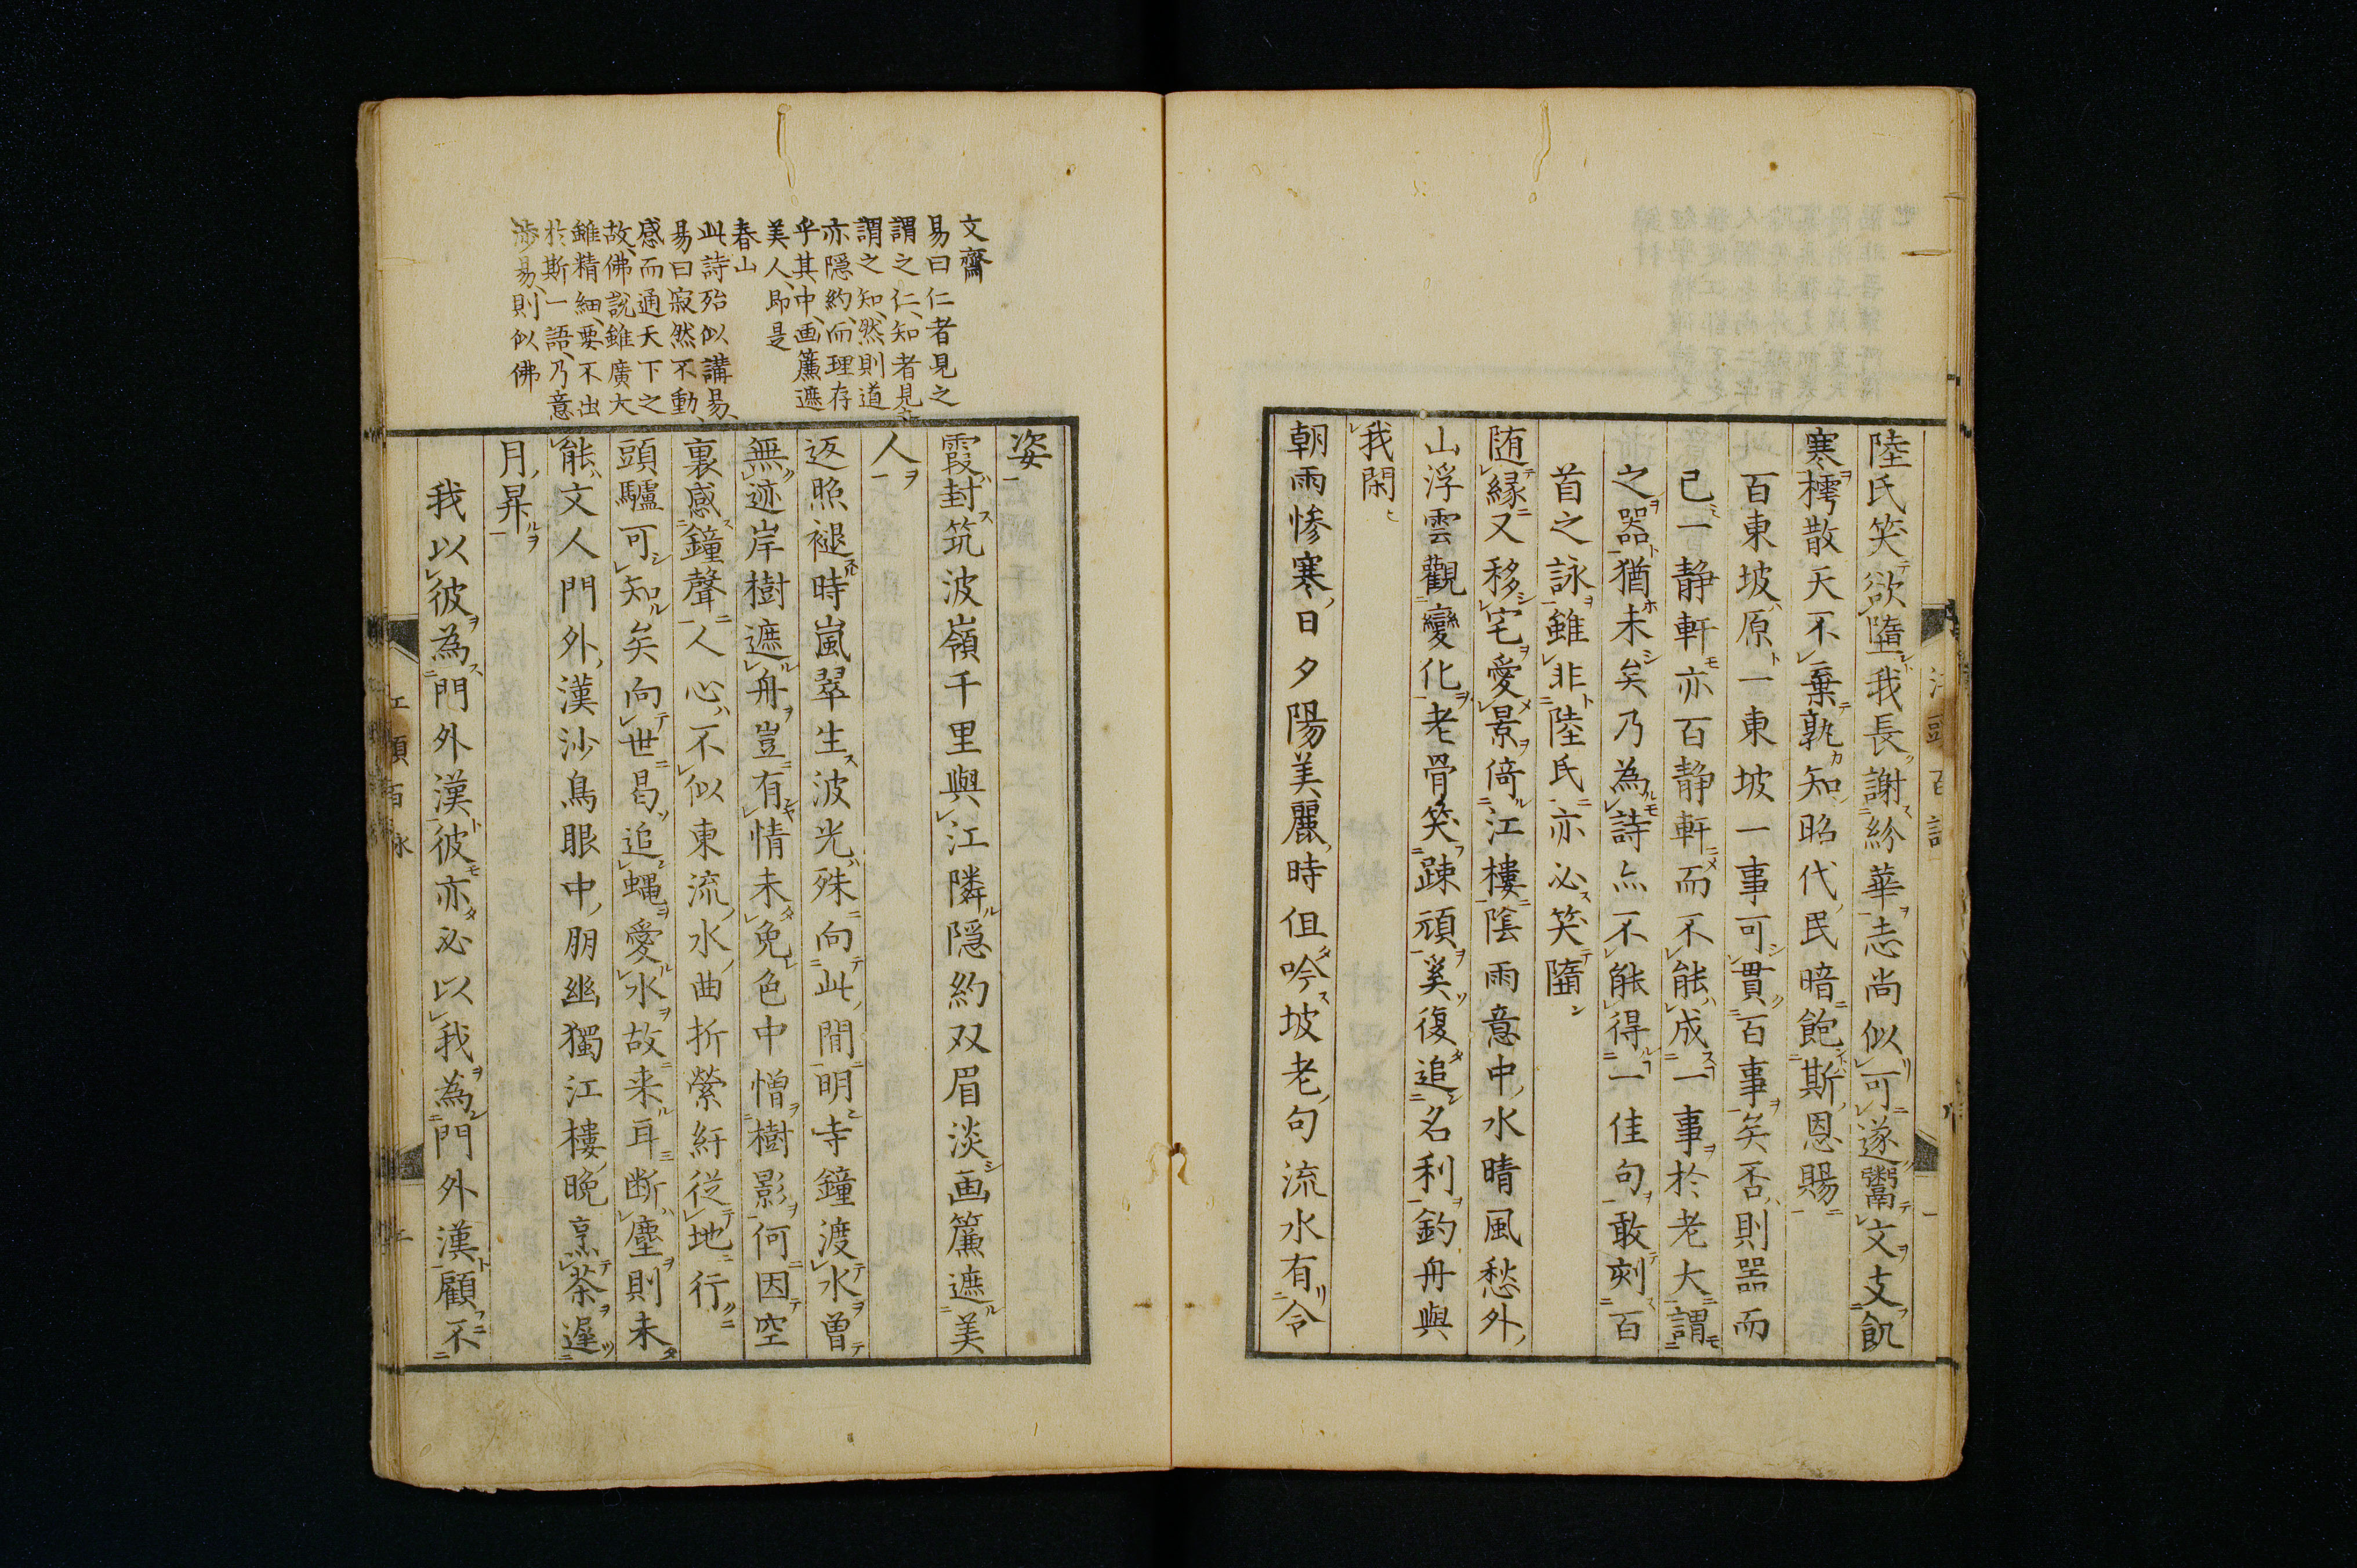 陸氏笑欲隨我長謝紛華志尚似可遂鬻文支飢
寒樗散天不棄孰知昭代民暗飽斯恩賜
百東坡原一東坡一事可貫百事矣否則噐而
已一静軒亦百静軒而不能成一事於老大謂
之器猶未矣乃為詩亦不能得一佳句敢刻百
首之詠雖非陸氏亦必笑隨
随縁又移宅愛景倚江樓陰雨意中水晴風愁外
山浮雲觀變化老骨笑踈頑奚復追名利釣舟與
我閑
朝雨惨寒日夕陽美麗時但吟坡老句流水有令
姿
霞封筑波嶺千里與江隣隠約双眉淡画簾遮美
人
返照褪時嵐翠生波光殊向此間明寺鐘渡水曽
無迹岸樹遮舟豈有情未免色中憎樹影何因空
裏感鐘聲人心不似東流水曲折縈紆従地行
頭驢可知矣向世曷追蠅愛水故来耳断塵則未
能文人門外漢沙鳥眼中朋幽獨江樓晩烹茶遲
月昇
我以彼為門外漢彼亦必以我為門外漢顧不
文齋
易曰仁者見之
謂之仁知者見
謂之知然則道
亦隠約而理存
乎其中画簾遮
美人即是
春山
此詩殆似講易
易曰寂然不動
感而通天下之
故佛説雖廣大
雖精細要不出
於斯一語乃意
渉易則似佛
江頭百詠